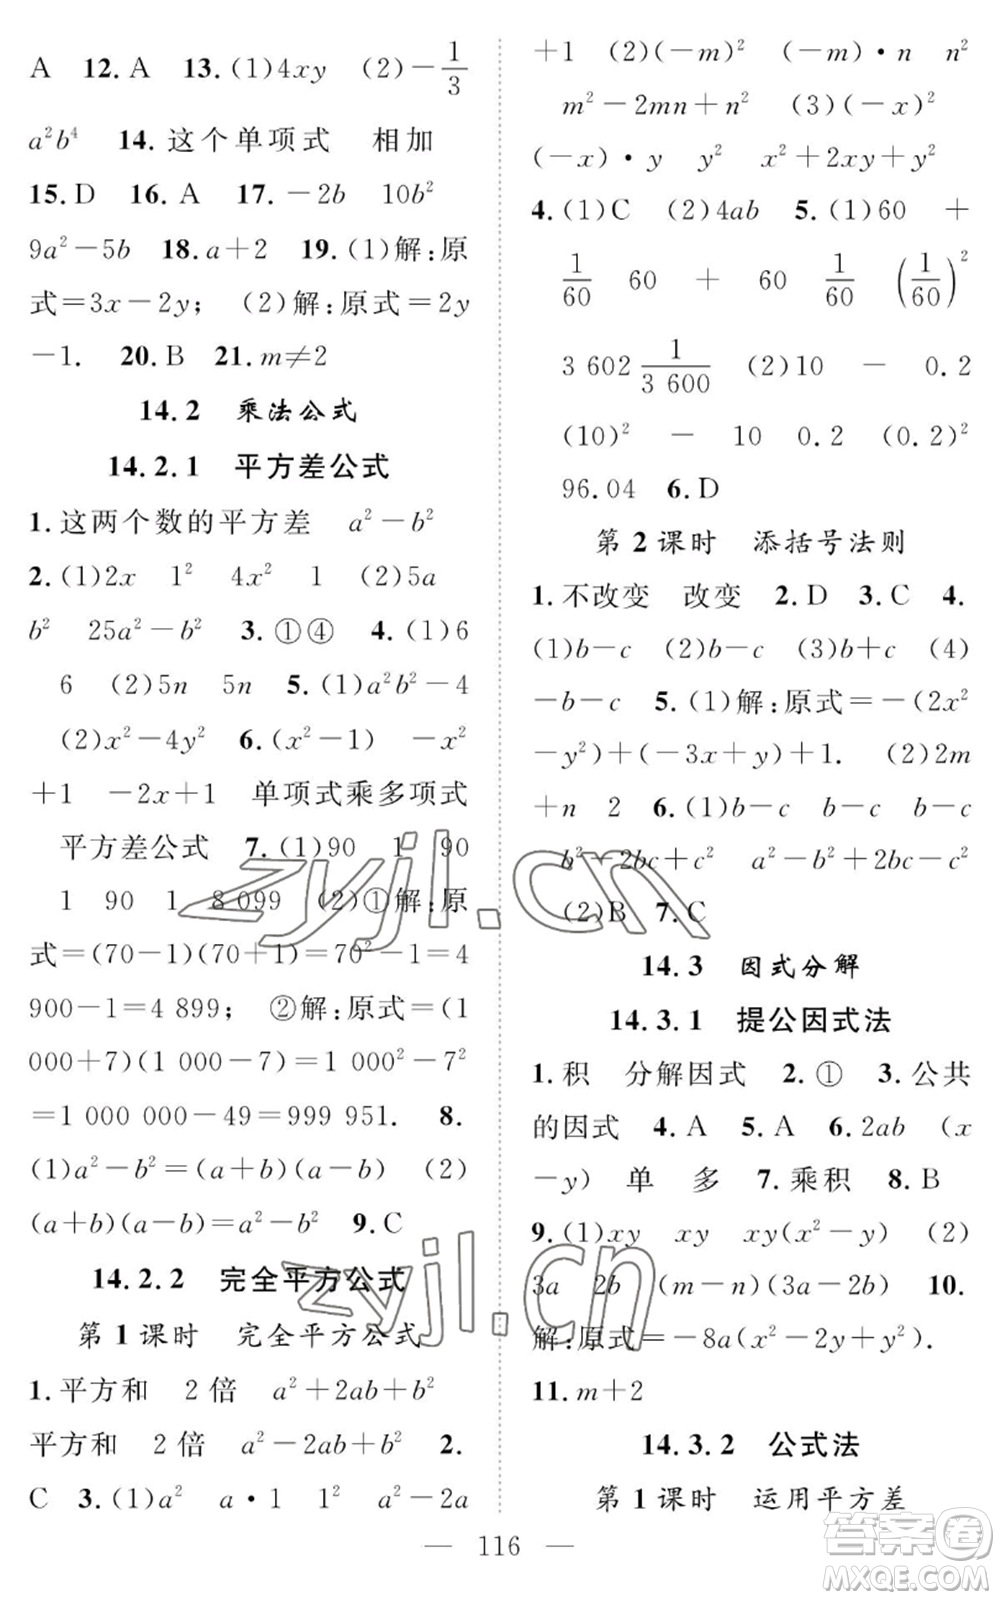 A 12.A 13.(1)4xy (2)-1/3
a²b⁴ 14.这个单项式 相加
15.D 16.A 17.-2b 10b²
9a²-5b 18.a+2 19.(1)解:原
式=3x-2y; (2)解:原式=2y
-1. 20.B 21.m≠2
14.2 乘法公式
14.2.1 平方差公式
1.这两个数的平方差 a²-b²
2.(1)2x 1² 4x² 1 (2)5a
b² 25a²-b² 3.①④ 4.(1)6
6 (2)5n 5n 5.(1)a²b²-4
(2)x²-4y² 6.(x²-1) -x²
+1 -2x+1 单项式乘多项式
平方差公式 7.(1)90 1 90
1 90 1 8 099 (2)①解:原
式=(70-1)(70+1)=70²-1=4
900-1=4 899; ②解:原式=(1
000+7)(1 000-7)=1 000²-7²
=1 000 000-49=999 951. 8.
(1)a²-b²=(a+b)(a-b) (2)
(a+b)(a-b)=a²-b² 9.C
14.2.2 完全平方公式
第1课时 完全平方公式
1.平方和 2倍 a²+2ab+b²
平方和 2倍 a²-2ab+b² 2.
C 3.(1)a² a·1 1² a²-2a
+1 (2)(-m)² (-m)·n n²
m²-2mn+n² (3)(-x)²
(-x)·y y² x²+2xy+y²
4.(1)C (2)4ab 5.(1)60 +
1/60 60 + 60 1/60 (1/60)²
3 602 1/3 600 (2)10 - 0.2
(10)² - 10 0.2 (0.2)²
96.04 6.D
第2课时 添括号法则
1.不改变 改变 2.D 3.C 4.
(1)b-c (2)b-c (3)b+c (4)
-b-c 5.(1)解:原式=-(2x²
-y²)+(-3x+y)+1. (2)2m
+n 2 6.(1)b-c b-c b-c
b²-2bc+c² a²-b²+2bc-c²
(2)B 7.C
14.3 因式分解
14.3.1 提公因式法
1.积 分解因式 2.① 3.公共
的因式 4.A 5.A 6.2ab (x
-y) 单 多 7.乘积 8.B
9.(1)xy xy xy(x²-y) (2)
3a 2b (m-n)(3a-2b) 10.
解:原式=-8a(x²-2y+y²).
11.m+2
14.3.2 公式法
第1课时 运用平方差
116
zyjl.cn
zyjl.cn
答案卷
MXQE.COM